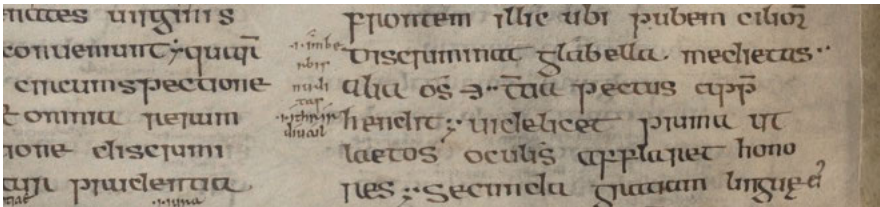 uirginis
conueniunt; quarū
circumspectione
omnia rerum
ione discrimi
prudentia.
.i. imbe
rbis
nudi
tas
frontem illic ubi pubem cilioꝝ
discriminat glabella. medietas
alia os̄ t̄tia pectus app̄
hendit; uidelicet prima ut
laetos oculis afflaret hono
res; secunda gratiam lingue